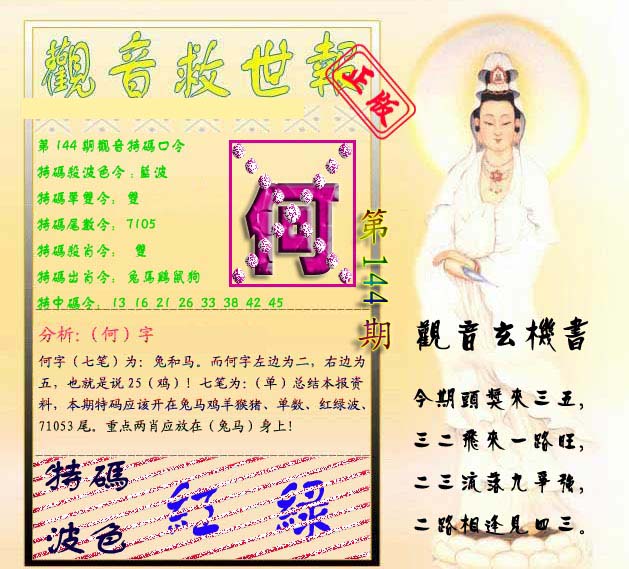 觀音救世報
正版
第144期觀音特碼口令
特碼殺波色令:藍波
特碼單雙令: 雙
特碼尾數令: 7105
特碼殺肖令: 雙
特碼出肖令: 兔馬鷄鼠狗
特中碼令: 13 16 21 26 33 38 42 45
何
第144期
分析:(何)字
何字（七笔）为：兔和马。而何字左边为二，右边为
五，也就是说25（鸡）！七笔为：（单）总结本报资
料，本期特码应该开在兔马鸡羊猴猪、单数、红绿波、
71053尾。重点两肖应放在（兔马）身上！
特碼
波色
紅 綠
觀音玄機書
今期頭獎來三五，
三二飛來一路旺，
二三流落九爭強，
二路相逢見四三。